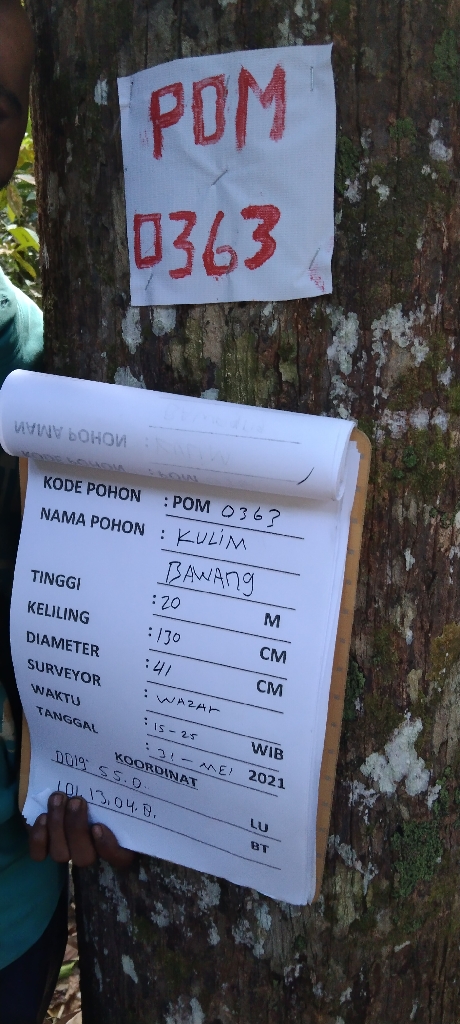 PDM
0363
KODE POHON : POM 0363
NAMA POHON : KULIM
BAWANG
TINGGI : 20 M
KELILING : 130 CM
DIAMETER : 41 CM
SURVEYOR : WAZAR
WAKTU : 15-25 WIB
TANGGAL : 31 - MEI 2021
KOORDINAT
0019 55.0. LU
101, 13.04.8. BT